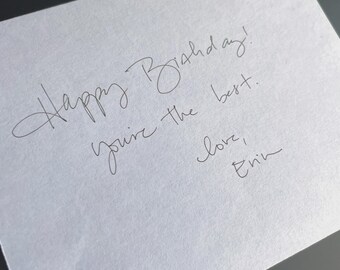 Happy Birthday!
You're the best.
love,
Erin